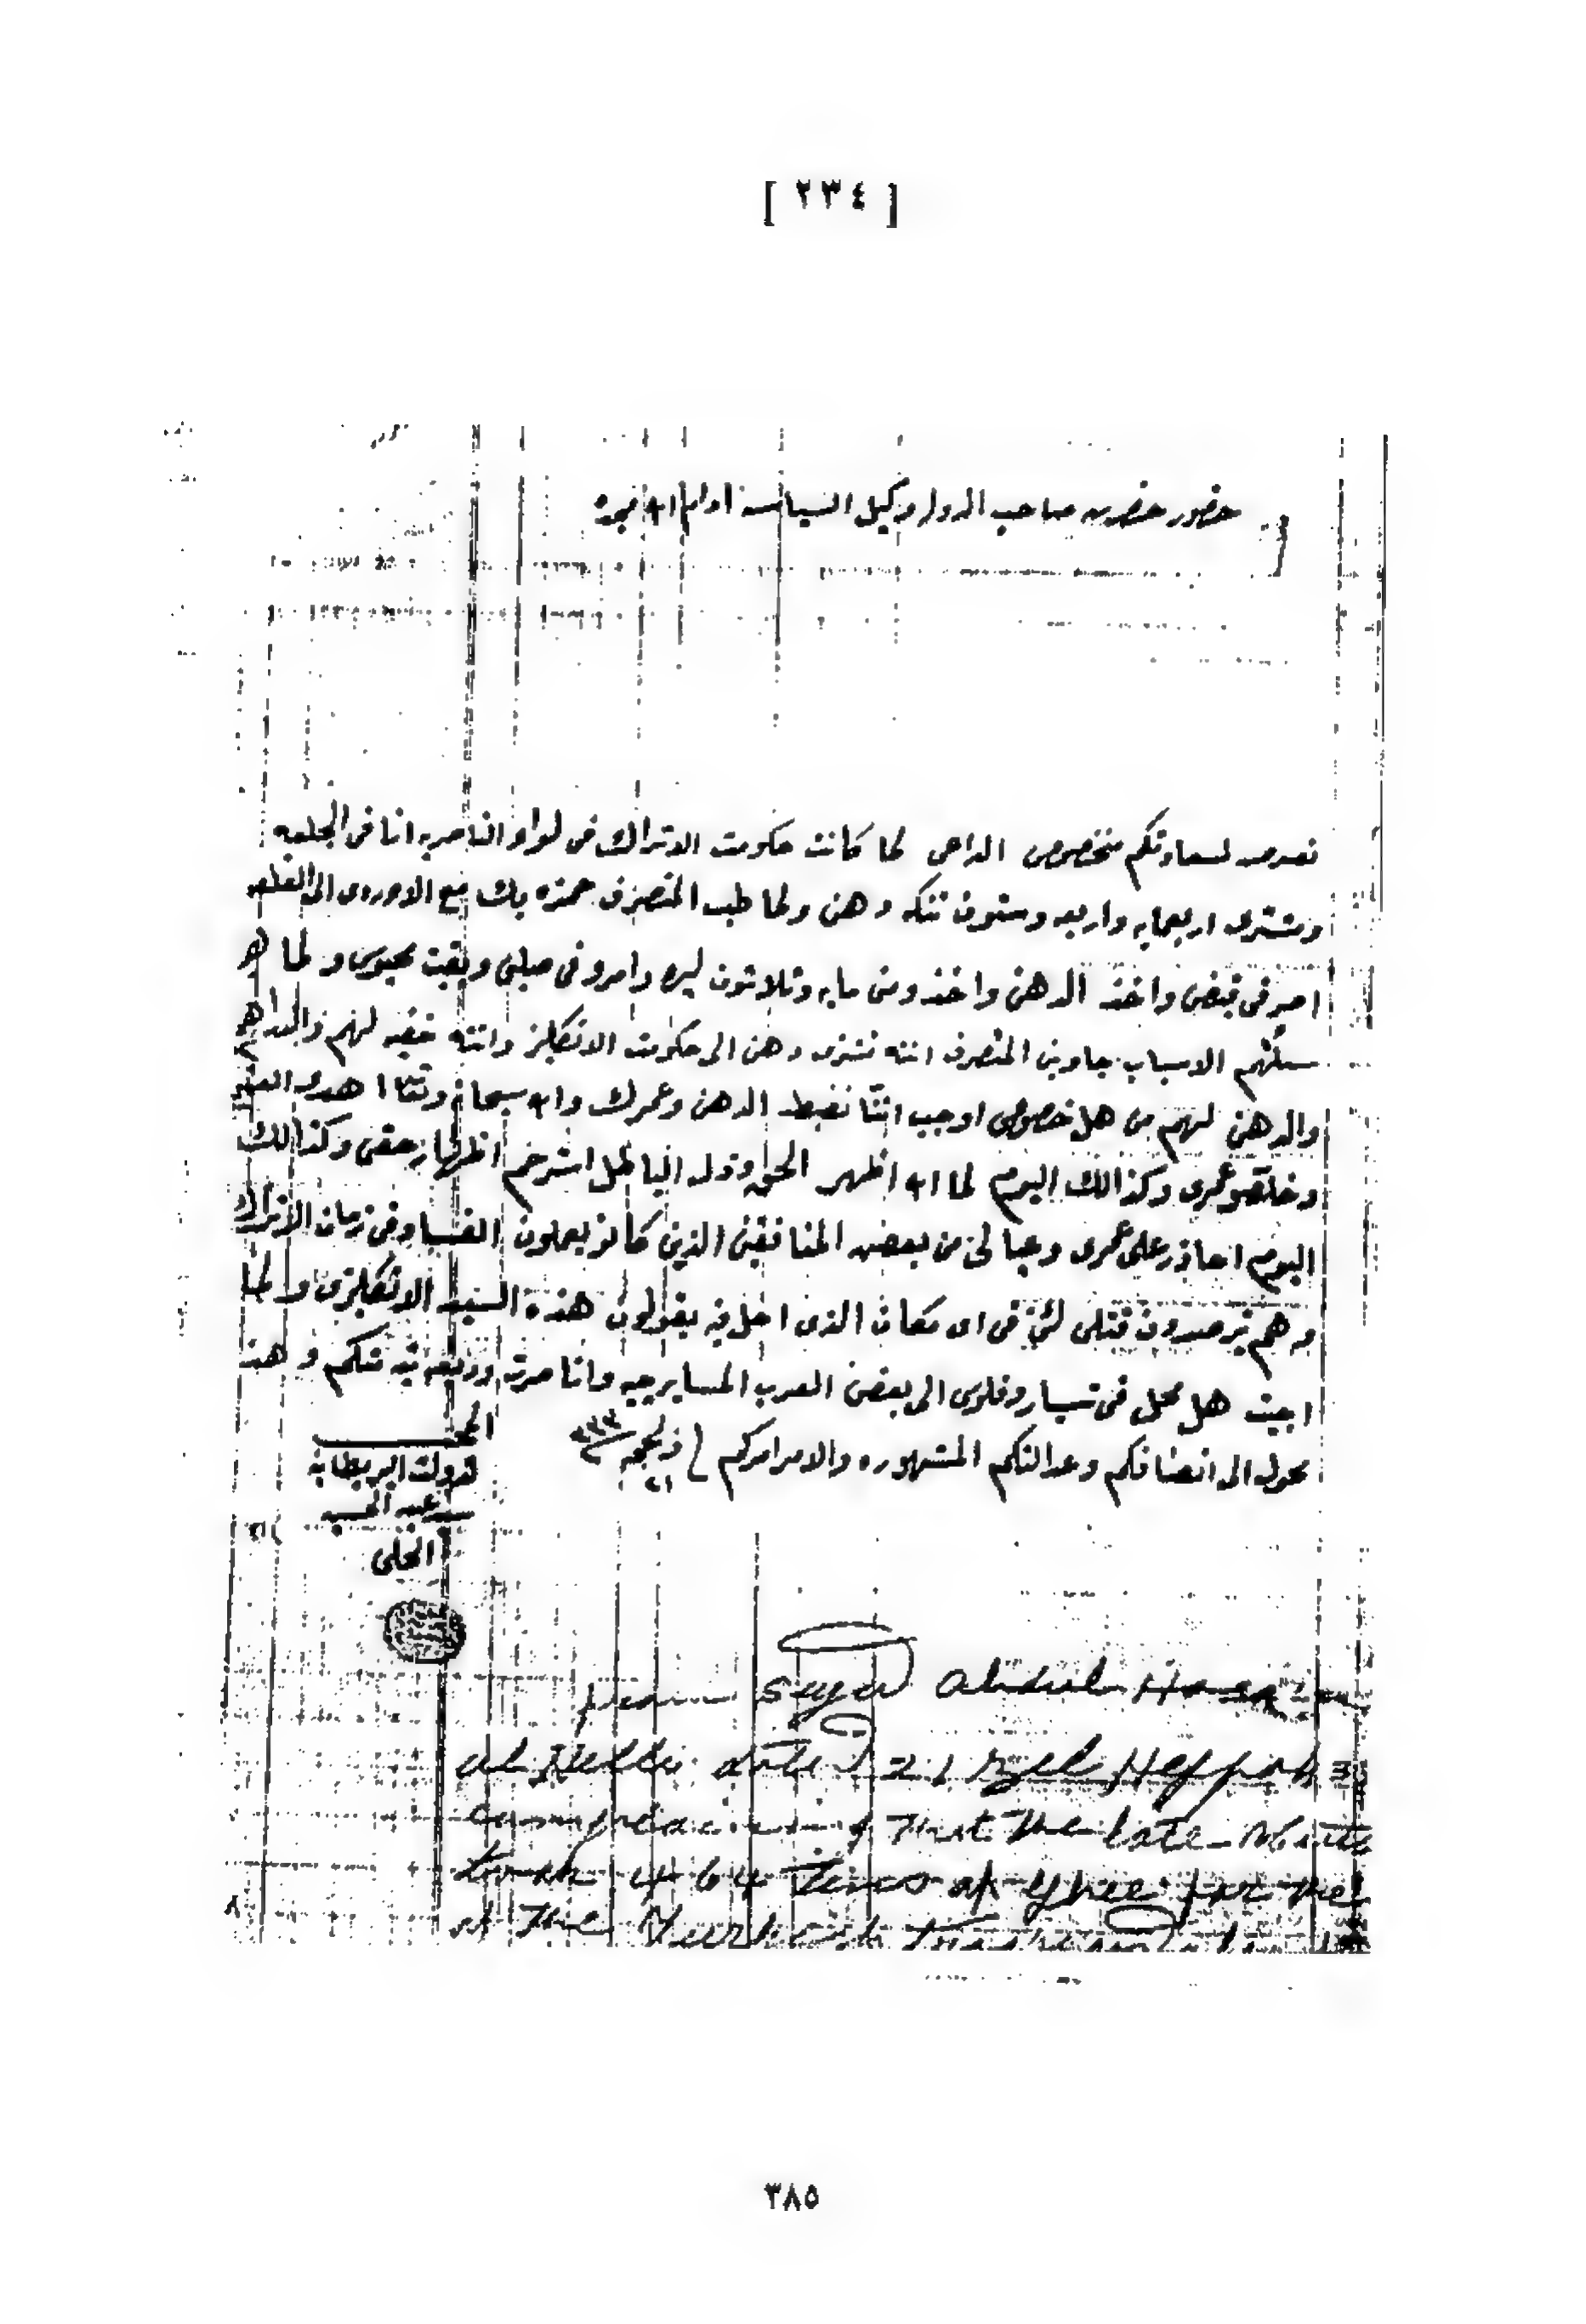 [ ٢٣٤ ]
حضور حضرت صاحب الدوله وكيل السياسه ادام الله مجده
نعرض لسعادتكم بخصوص الداعي لما كانت حكومت الاتراك في لواء الناصريه انا في
ومشتري اربعمايه واربعه وستون تنكه دهن ولما طب المتصرف حمزه بك مع الاوردي الى القلعه
امر في قبضي واخذ الدهن واخذ ومني مايه وثلاثون ليره وامرو في صلبي وبقيت محبوس ولما
سئلتهم الاسباب جاوبني المتصرف انته تشتري دهن الى حكومت الانكليز وانته خفيه لهم والدراهم
والدهن لهم من هل خصوص اوجب اننا نضبط الدهن وعمرك والله سبحانه وتعا اهدى
وخلصو عمري وكذالك اليوم لما الله اظهر الحق وذل الباطل استرحم اظهار حقي وكذالك
اليوم احاذر على عمري وعيالي من بعض المنافقين الذين كانو يعملون الفساد في زمان الاتراك
وهم يترصدون قتلي لئن في اي مكان الذي احل فيه يقولون هذه السيد الانكليزي ولما
اجيت هل محل في تسيار وفلوس الى بعض العرب المسايرجيه وانا صرت
محول الى انصافكم وعدالتكم المشهوره والامر امركم ٢١ ذ لحجه ٣٣٣
لدولت البريطانيه
عبد الحسين
الحلي
from Seyd Abdul Hosein
al Helli dated 21 Zel Hejjah
that the late
took 464 Tins of ghee for the
of the
٣٨٥